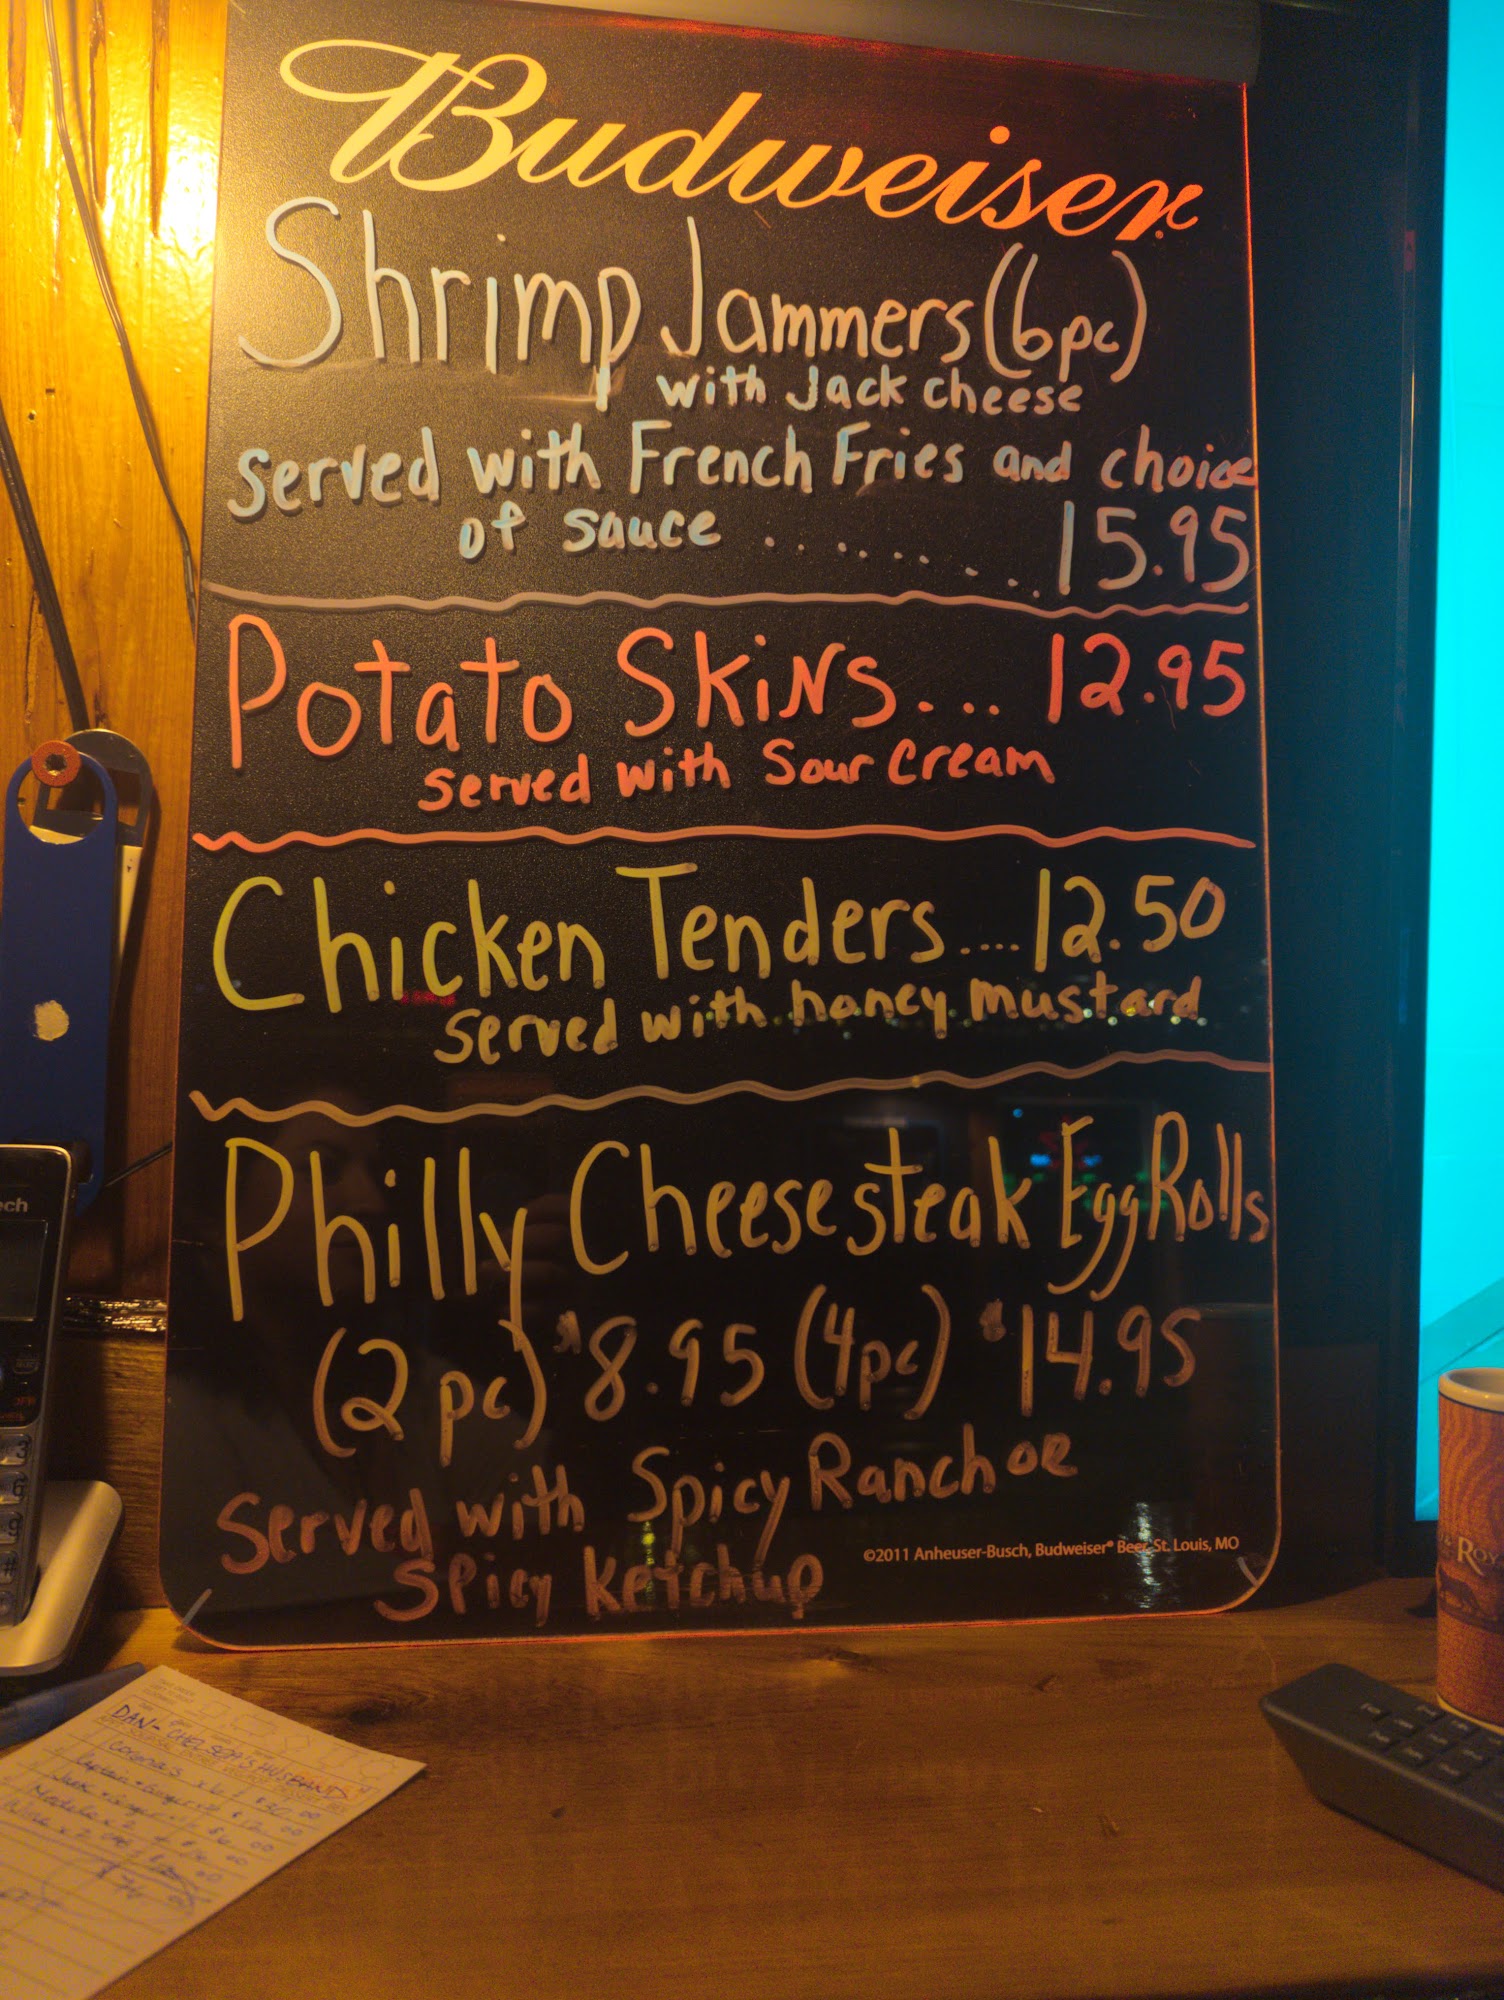 Budweiser
Shrimp Jammers (6pc)
with Jack cheese
served with French Fries and choice
of sauce ......... 15.95
Potato Skins.... 12.95
served with Sour Cream
Chicken Tenders.... 12.50
served with honey mustard
Philly Cheesesteak Egg Rolls
(2pc) $8.95 (4pc) $14.95
Served with Spicy Ranch or
Spicy Ketchup
©2011 Anheuser-Busch, Budweiser® Beer, St. Louis, MO
ech
3
6
9
#
DAN- CHELSEA'S HUSBAND
Corona's x 6
Roy